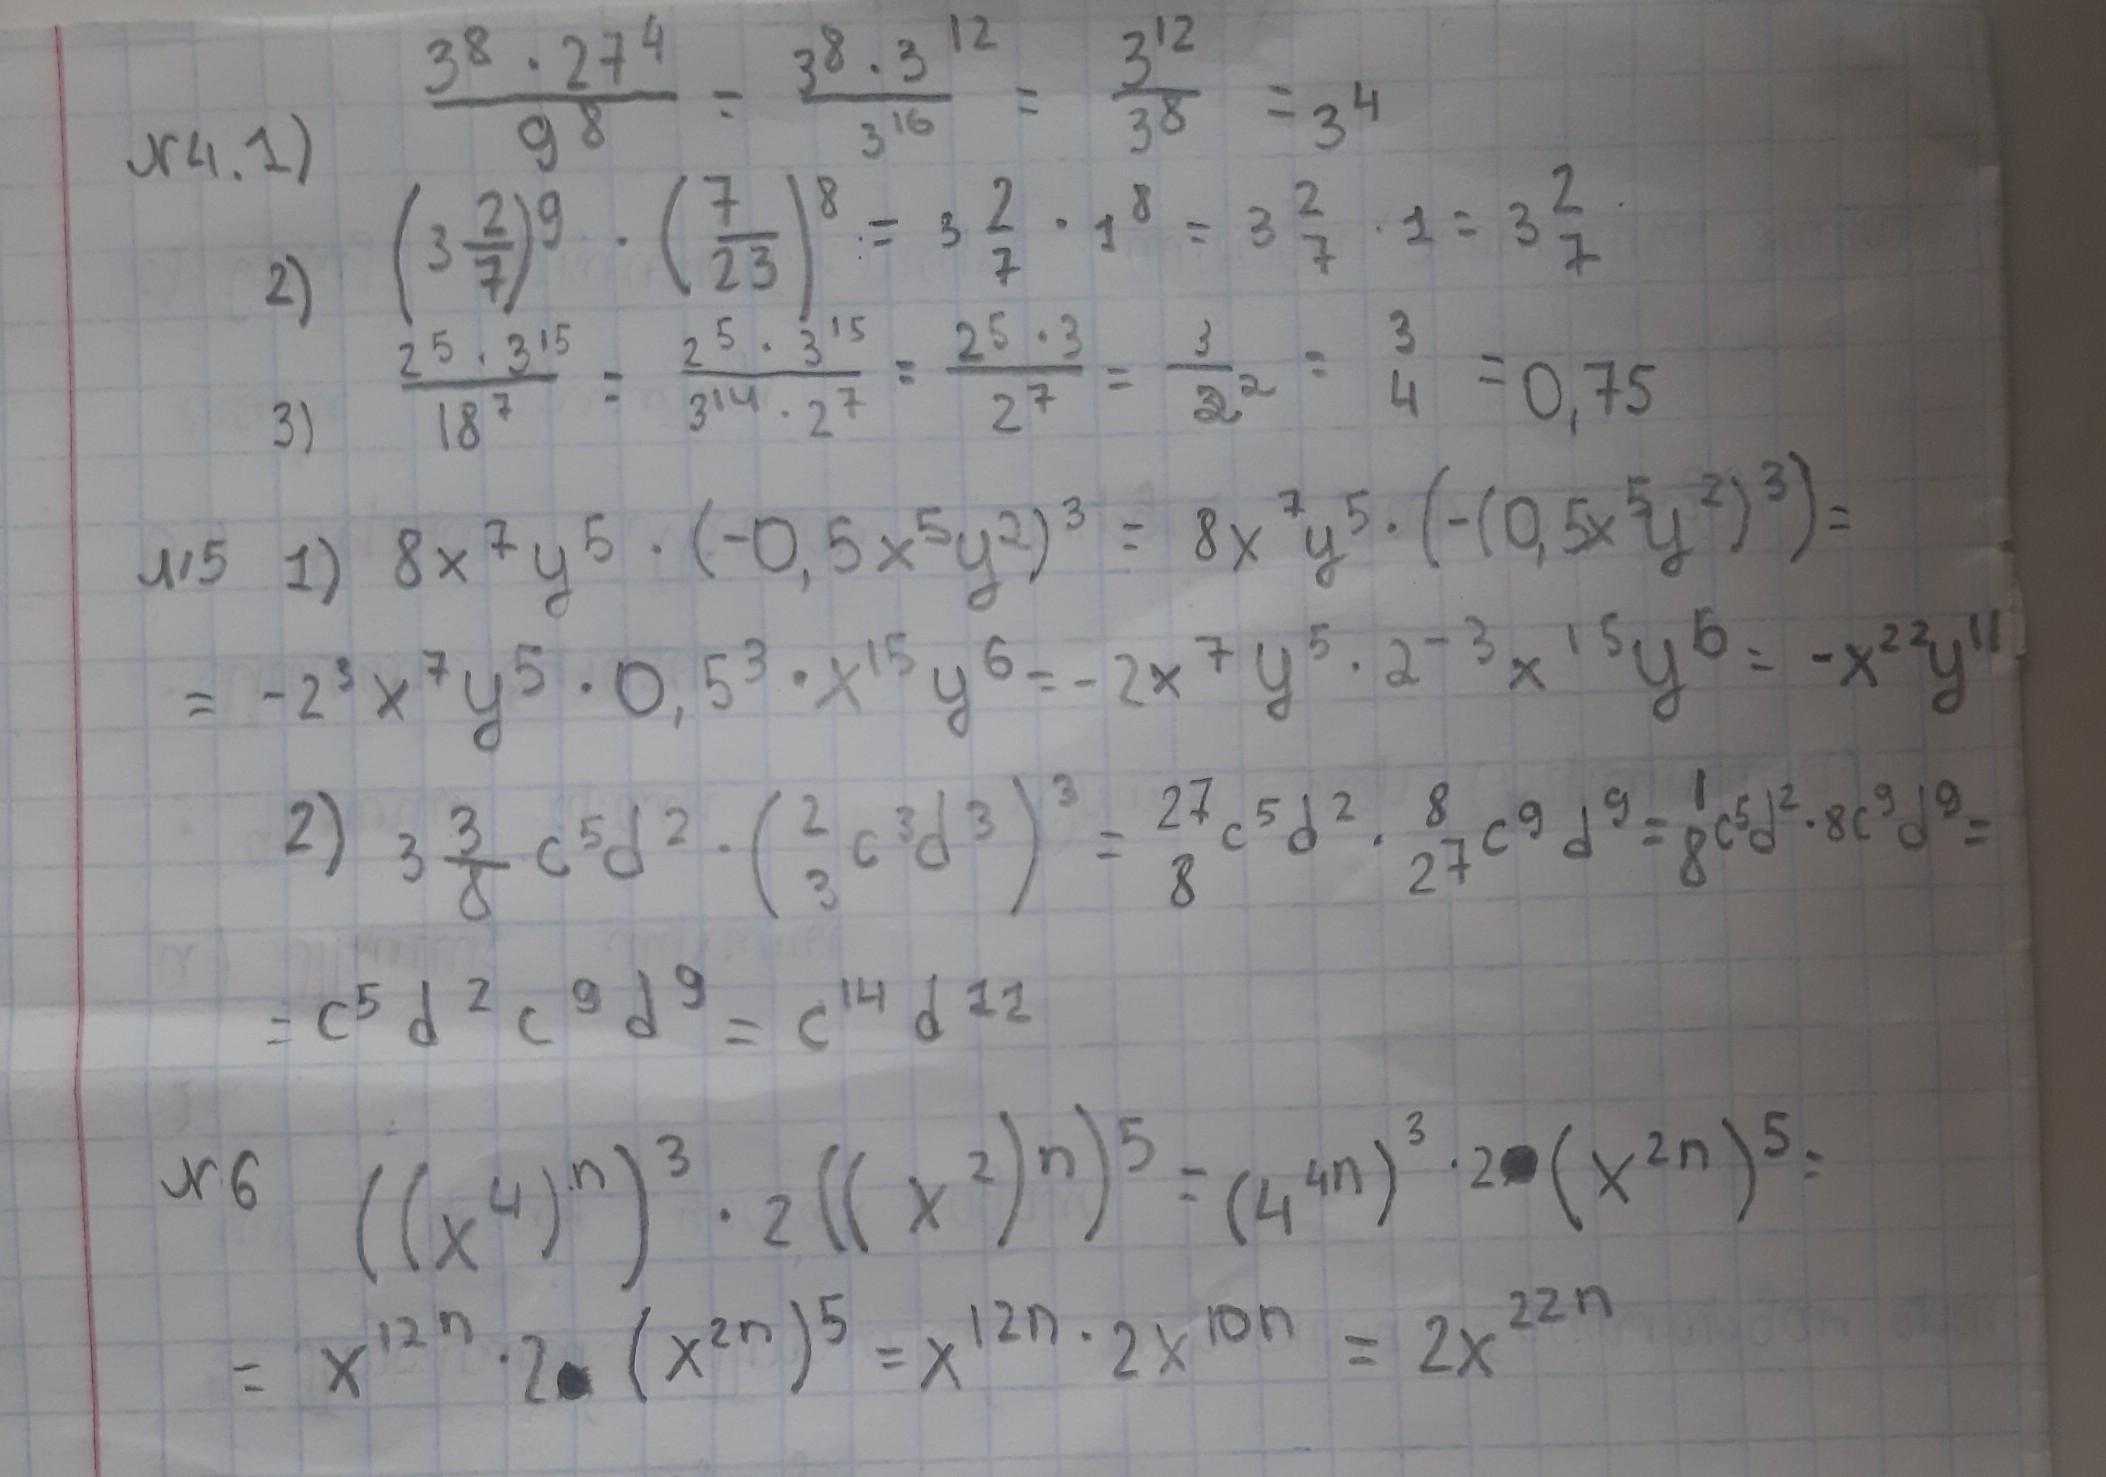 №4. 1) 3^8 · 27^4 / 9^8 = 3^8 · 3^12 / 3^16 = 3^12 / 3^8 = 3^4
2) (3 2/7)^9 · (7/23)^8 = 3 2/7 · 1^8 = 3 2/7 · 1 = 3 2/7
3) 2^5 · 3^15 / 18^7 = 2^5 · 3^15 / 3^14 · 2^7 = 2^5 · 3 / 2^7 = 3 / 2^2 = 3/4 = 0,75
№5 1) 8x^7y^5 · (-0,5x^5y^2)^3 = 8x^7y^5 · (-(0,5x^5y^2)^3) =
= -2^3x^7y^5 · 0,5^3 · x^15y^6 = -2x^7y^5 · 2^-3x^15y^6 = -x^22y^11
2) 3 3/8 c^5d^2 · (2/3 c^3d^3)^3 = 27/8 c^5d^2 · 8/27 c^9d^9 = 1/8 c^5d^2 · 8c^9d^9 =
= c^5d^2c^9d^9 = c^14d^11
№6 ((x^4)^n)^3 · 2((x^2)^n)^5 = (4^4n)^3 · 2(x^2n)^5 =
= x^12n · 2(x^2n)^5 = x^12n · 2x^10n = 2x^22n